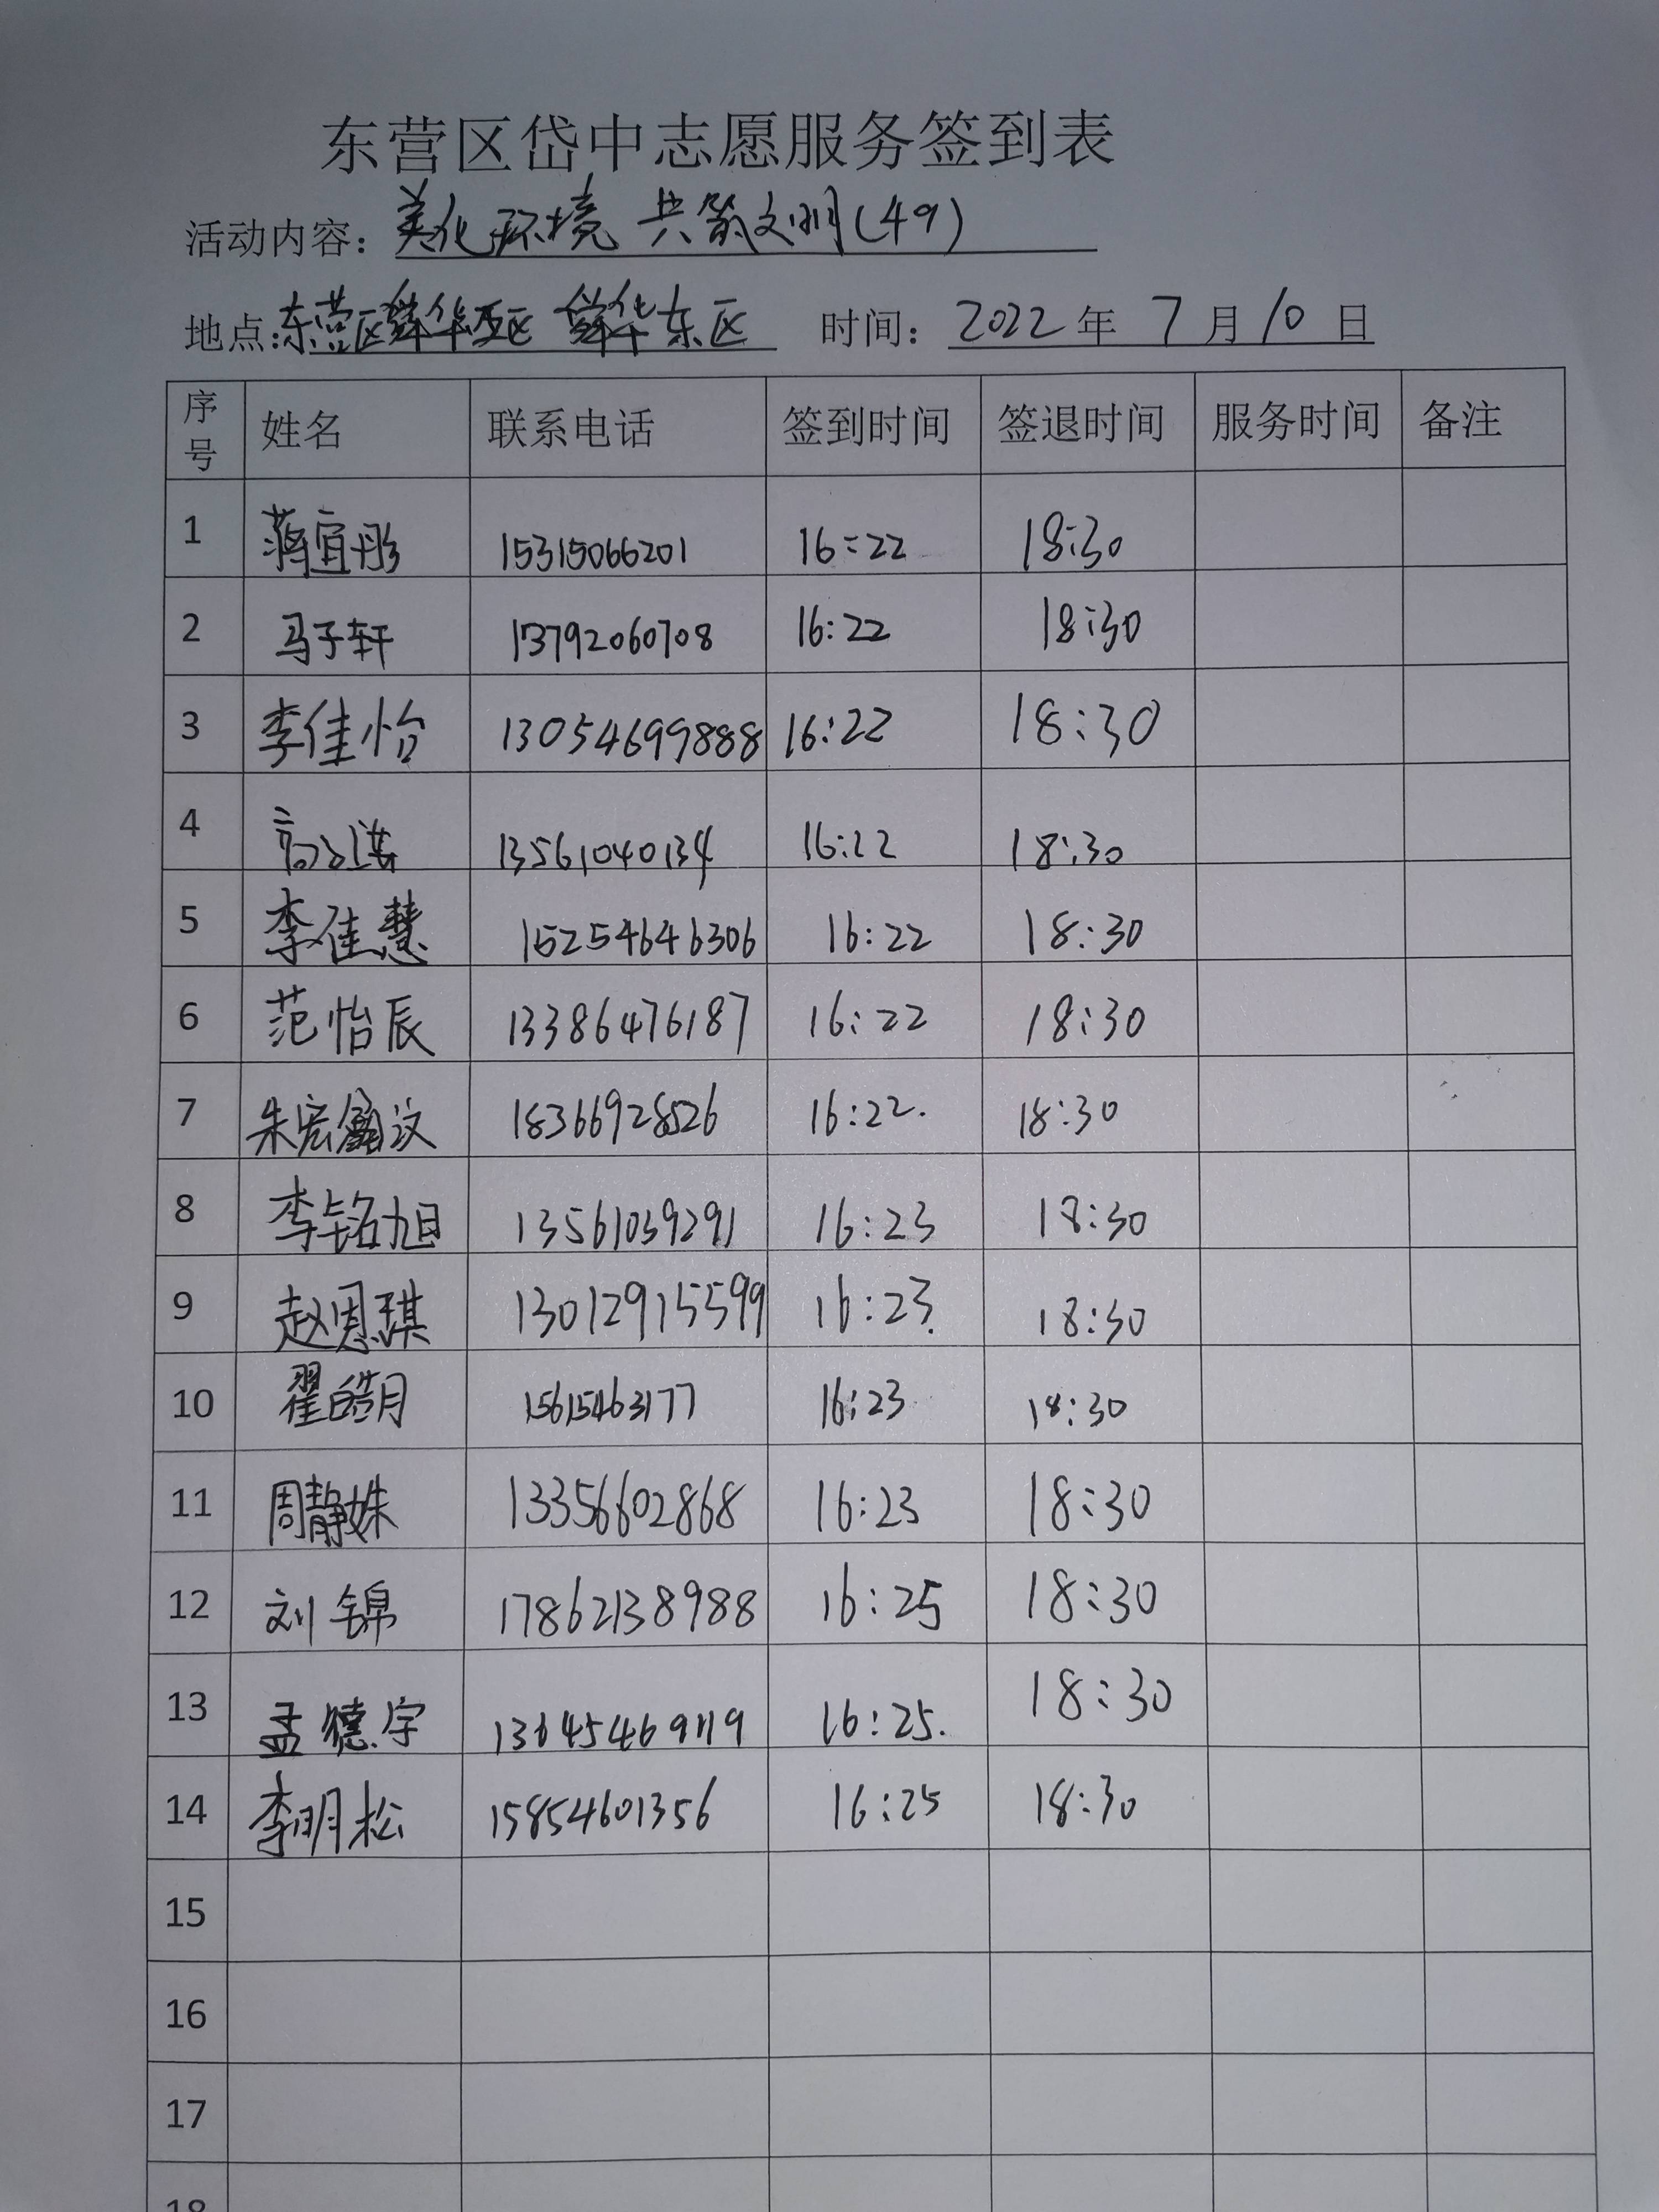 东营区岱中志愿服务签到表
活动内容：美化环境 共筑文明(49)
地点:东营区辉华西区 辉华东区 时间：2022年7月10日
序号 姓名 联系电话 签到时间 签退时间 服务时间 备注
1 蒋宜彤 15315066201 16:22 18:30
2 马子轩 13792060708 16:22 18:30
3 李佳怡 13054699888 16:22 18:30
4 高 13561040134 16:22 18:30
5 李佳慧 15254646306 16:22 18:30
6 范怡辰 13386476187 16:22 18:30
7 朱宏 汶 18366928526 16:22. 18:30
8 李铭旭 13561039291 16:23 18:30
9 赵恩琪 13012915599 16:23. 18:30
10 翟皓月 15615463177 16:23 18:30
11 周静姝 13356602868 16:23 18:30
12 刘锦 17862138988 16:25 18:30
13 孟德宇 13645469119 16:25. 18:30
14 李明松 15854601356 16:25 18:30
15
16
17
18